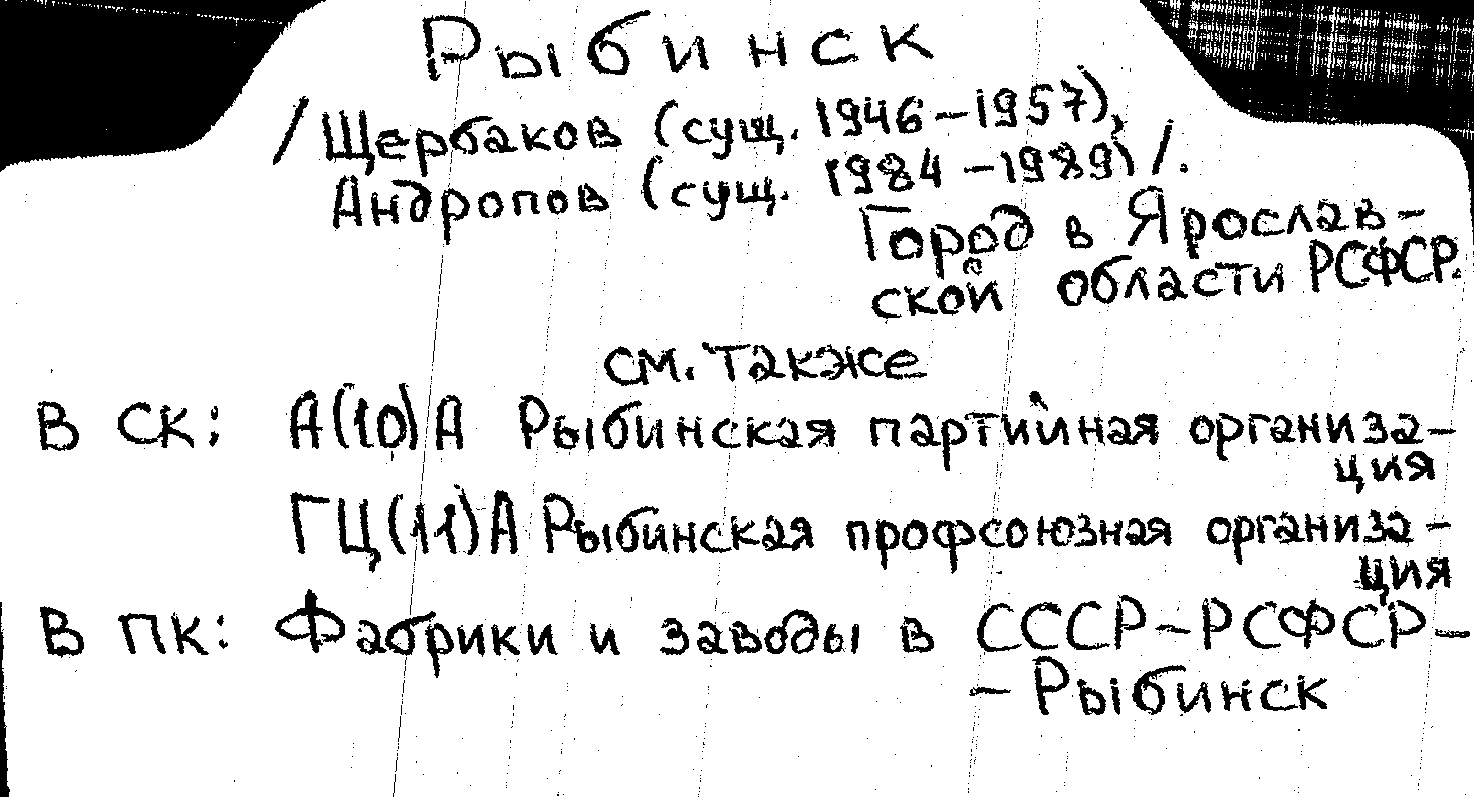 Рыбинск
/Щербаков (сущ. 1946-1957),
Андропов (сущ. 1984-1989)/.
Город в Ярослав-
ской области РСФСР.
см. также
В СК: А(10)А Рыбинская партийная организа-
ция
ГЦ(11)А Рыбинская профсоюзная организа-
ция
В ПК: Фабрики и заводы в СССР-РСФСР-
-Рыбинск